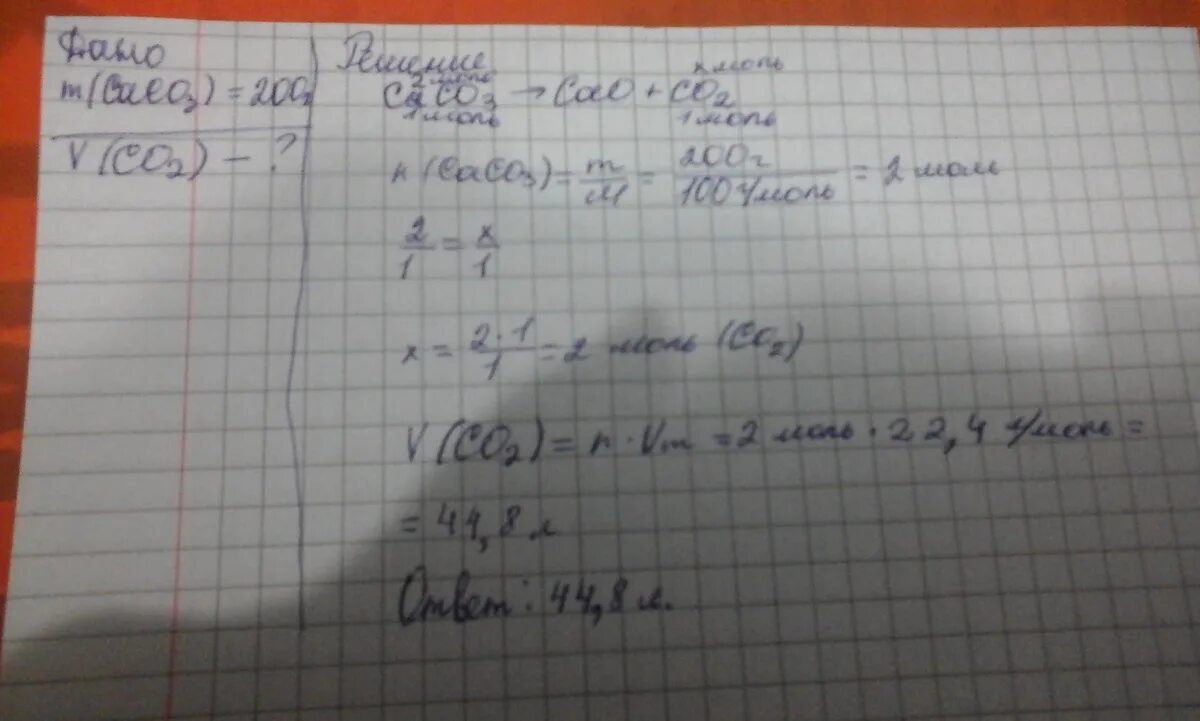 Дано
m(CaCO₃) = 200г
V(CO₂) - ?
Решение
2 моль x моль
CaCO₃ → CaO + CO₂
1 моль 1 моль
n(CaCO₃) = m/M = 200г/100 г/моль = 2 моль
2/1 = x/1
x = 2·1/1 = 2 моль (CO₂)
V(CO₂) = n · Vm = 2 моль · 22,4 л/моль =
= 44,8 л
Ответ: 44,8 л.